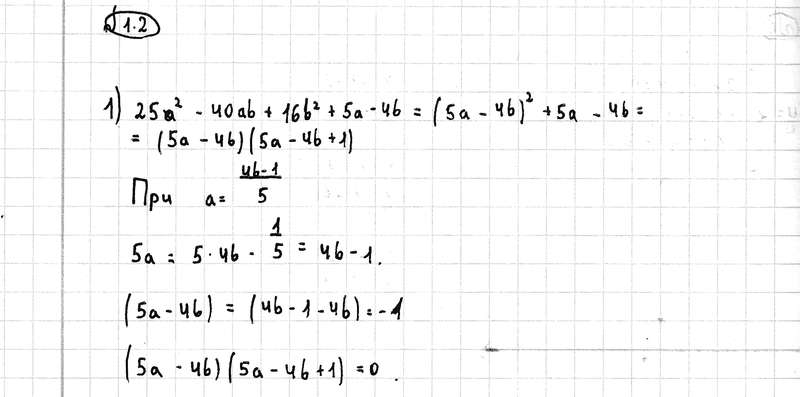 1.2
1) 25a² - 40ab + 16b² + 5a - 4b = (5a - 4b)² + 5a - 4b =
= (5a - 4b)(5a - 4b + 1)
При a = (4b-1)/5
5a = 5 · 4b - 1/5 = 4b - 1.
(5a - 4b) = (4b - 1 - 4b) = -1
(5a - 4b)(5a - 4b + 1) = 0.